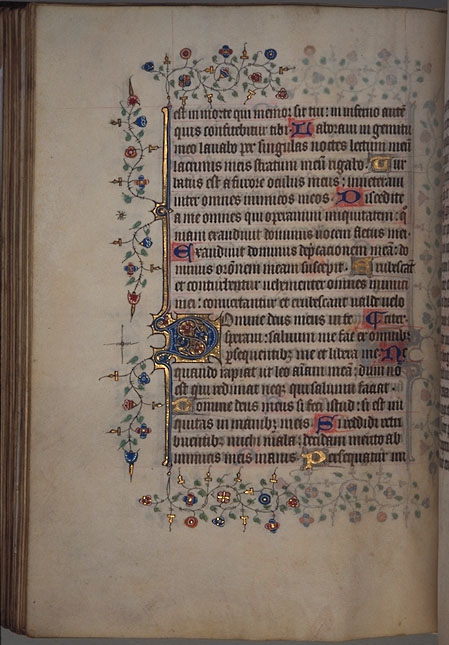 est in morte qui memor sit tui: in inferno autẽ
quis confitebitur tibi. Laboraui in gemitu
meo lauabo per singulas noctes lectum meũ
lacrimis meis stratum meũ rigabo. Tur
batus est a furore oculus meus: inueteraui
inter omnes inimicos meos. Discedite
a me omnes qui operamini iniquitatem: q̃
niam exaudiuit dominus uocem fletus mei.
Exaudiuit dominus dep̃cacionem meã: do
minus orõnem meam suscepit. Erubescãt
et conturbentur vehementer omnes inimici
mei: conuertantur et erubescant ualde velo
Domine deus meus in te citer.
speraui: saluum me fac ex omnibꝫ
ꝑsequentibꝫ me et libera me. Ne
quando rapiat ut leo aĩam meã: dum nõ
est qui redimat neqꝫ qui saluum faciat
Domine deus meus si feci istud: si est ini
quitas in manibꝫ meis. Si reddidi retri
buentibꝫ michi mala: decidam merito ab
inimicis meis inanis. Persequatur ini